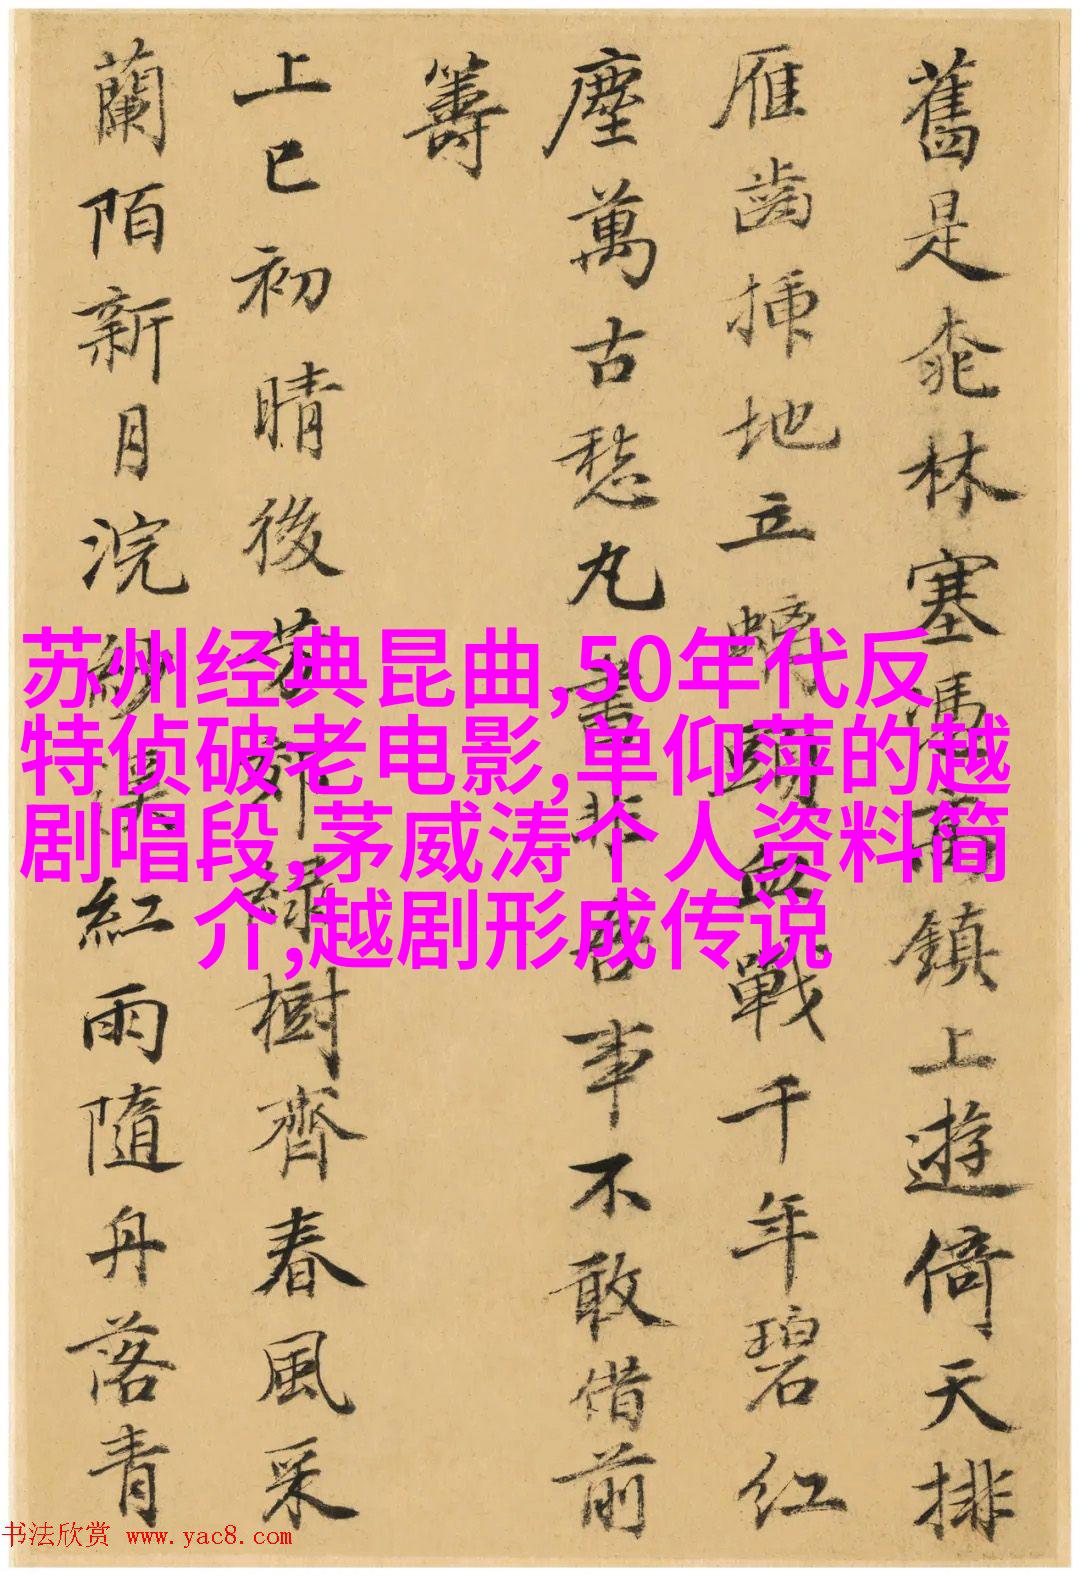 舊是桃林塞馮高鎮上遊倚天排
雁齒插地立螭頭血戰千年碧紅
塵萬古愁丸書非吾事不敢借前
籌
上巳初晴後芳郊綠樹齊春風采
蘭陌新月浣紗溪紅雨隨舟落青
苏州经典昆曲,50年代反
特侦破老电影,单仰萍的越
剧唱段,茅威涛个人资料简
介,越剧形成传说
书法欣赏 www.yac8.com